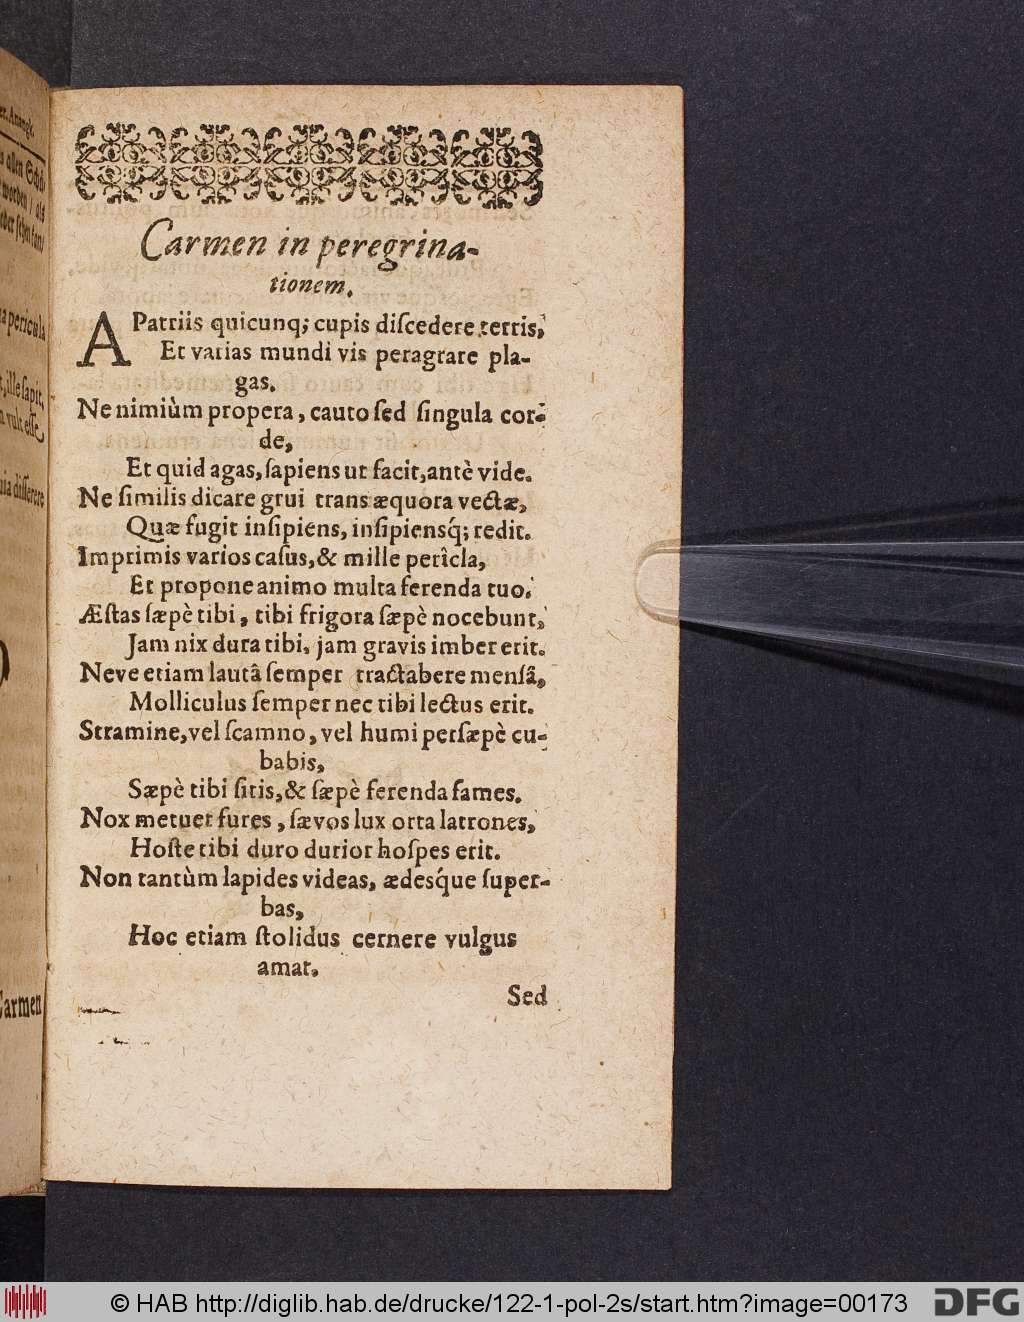 er. Anangk.
s allen Schif
worden / als
oder sehen kan/
na pericula
t, ille sapit,
n vult esse
uia differere
Carmen
Carmen in peregrina-
tionem.
A Patriis quicunq; cupis discedere terris,
Et varias mundi vis peragrare pla-
gas.
Ne nimiùm propera, cauto sed singula cor-
de,
Et quid agas, sapiens ut facit, antè vide.
Ne similis dicare grui trans æquora vectæ,
Quæ fugit insipiens, insipiensq́; redit.
Imprimis varios casus, & mille perîcla,
Et propone animo multa ferenda tuo.
Æstas sæpè tibi, tibi frigora sæpè nocebunt,
Jam nix dura tibi, jam gravis imber erit.
Neve etiam lautâ semper tractabere mensâ,
Molliculus semper nec tibi lectus erit.
Stramine, vel scamno, vel humi persæpè cu-
babis,
Sæpè tibi sitis, & sæpè ferenda fames.
Nox metuet fures, sævos lux orta latrones,
Hoste tibi duro durior hospes erit.
Non tantùm lapides videas, ædesq́ue super-
bas,
Hoc etiam stolidus cernere vulgus
amat.
Sed
© HAB http://diglib.hab.de/drucke/122-1-pol-2s/start.htm?image=00173
DFG